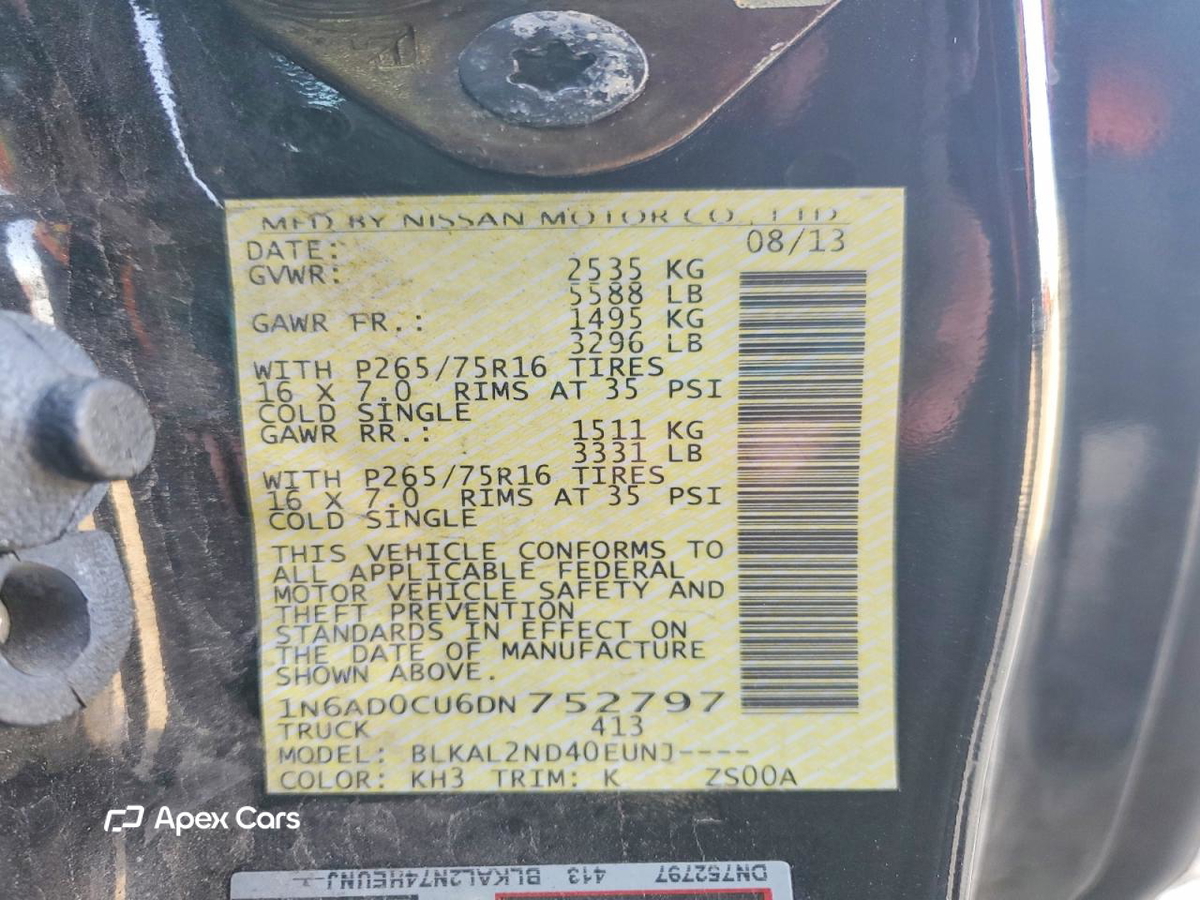 MFD BY NISSAN MOTOR CO., LTD
DATE: 08/13
GVWR: 2535 KG
5588 LB
GAWR FR.: 1495 KG
3296 LB
WITH P265/75R16 TIRES
16 X 7.0 RIMS AT 35 PSI
COLD SINGLE
GAWR RR.: 1511 KG
3331 LB
WITH P265/75R16 TIRES
16 X 7.0 RIMS AT 35 PSI
COLD SINGLE
THIS VEHICLE CONFORMS TO
ALL APPLICABLE FEDERAL
MOTOR VEHICLE SAFETY AND
THEFT PREVENTION
STANDARDS IN EFFECT ON
THE DATE OF MANUFACTURE
SHOWN ABOVE.
1N6AD0CU6DN752797
TRUCK 413
MODEL: BLKAL2ND40EUNJ----
COLOR: KH3 TRIM: K ZS00A
Apex Cars
DN752797 413 BLKAL2N74HEUNJ--